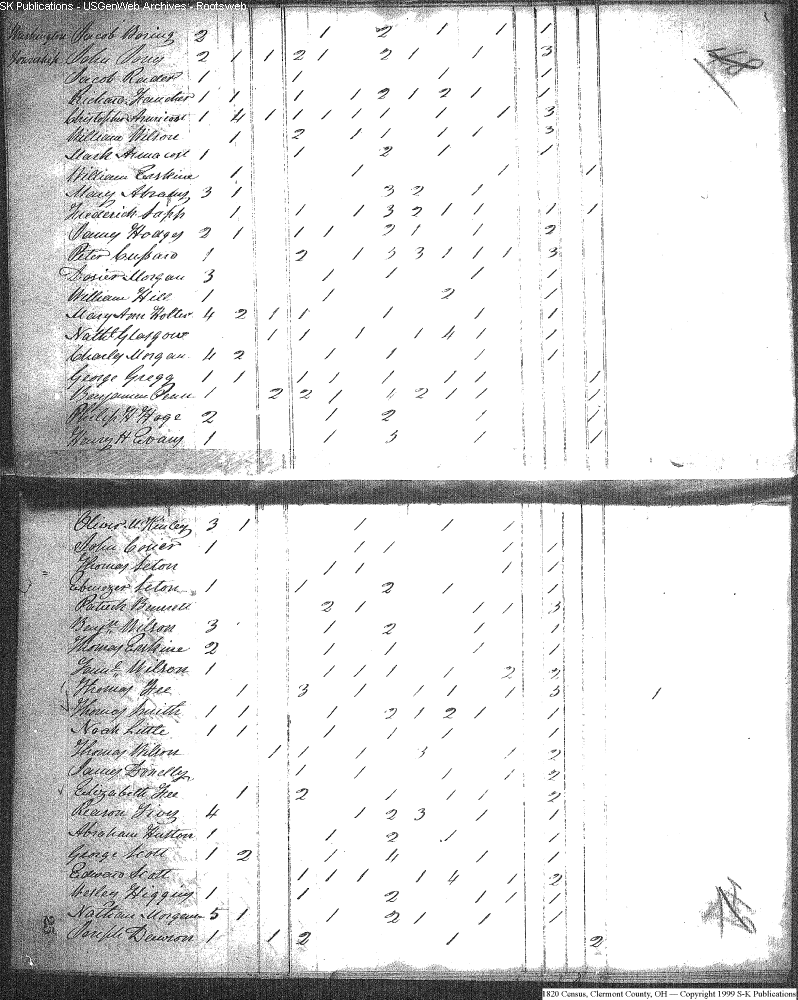 SK Publications - USGenWeb Archives - Rootsweb
Washington Jacob Boring 2 1 2 1 1 1
Township John 2 1 1 2 1 2 1 1 3
Jacob Rader 1 1 1 1
Richard 1 1 1 1 2 1 2 1 1
Christopher Armacost 1 4 1 1 1 1 1 1 1 3
William Wilson 1 2 1 1 1 1 3
Mark Armacost 1 1 2 1 1
William Erskine 1 1 1 1
Mary Abrams 3 1 3 2 1
Frederich Sapp 1 1 1 3 2 1 1 1 1
James Hodges 2 1 1 1 2 1 1 2
Peter 1 2 1 3 3 1 1 1 3
Dosier Morgan 3 1 1 1 1
William Hill 1 1 2 1
Mary Ann 4 2 1 1 1 1 1
Nathl Glasgow 1 1 1 1 1 4 1 1
Charles Morgan 4 2 1 1 1 1
George Gregg 1 1 1 1 1 1 1 1
Benjamin Penn 1 2 2 1 4 2 1 1 1
Philip H Hoge 2 1 2 1 1
Harry H Evans 1 1 3 1 1
48
Oliver McKinley 3 1 1 1 1
John 1 1 1 1 1
Thomas Seton 1 1 1 1
Ebenezer Seton 1 1 2 1 1
Patrick Bennett 2 1 1 1 3
Benjn Wilson 3 1 2 1 1
Thomas Erskine 2 1 1 1 1
Saml Wilson 1 1 1 1 1 2
Thomas Fee 1 3 1 1 1 1 3 1
Thomas Smith 1 1 1 2 1 2 1 1
Noah Little 1 1 1 1 1 1
Thomas Wilson 1 1 1 3 1 2
James Donelly 1 1 1 1 2
Elizabeth Fee 1 2 1 1 1 2
Reason 4 1 2 3 1 1
Abraham Huston 1 1 2 1 1
George Scott 1 2 1 4 1 1
Edward Scott 1 1 1 1 4 1 2
Wesley Higgins 1 1 2 1 1 1
Nathan Morgan 5 1 1 2 1 1 1
Joseph Dawson 1 1 2 1 2
25
1820 Census, Clermont County, OH — Copyright 1999 S-K Publications